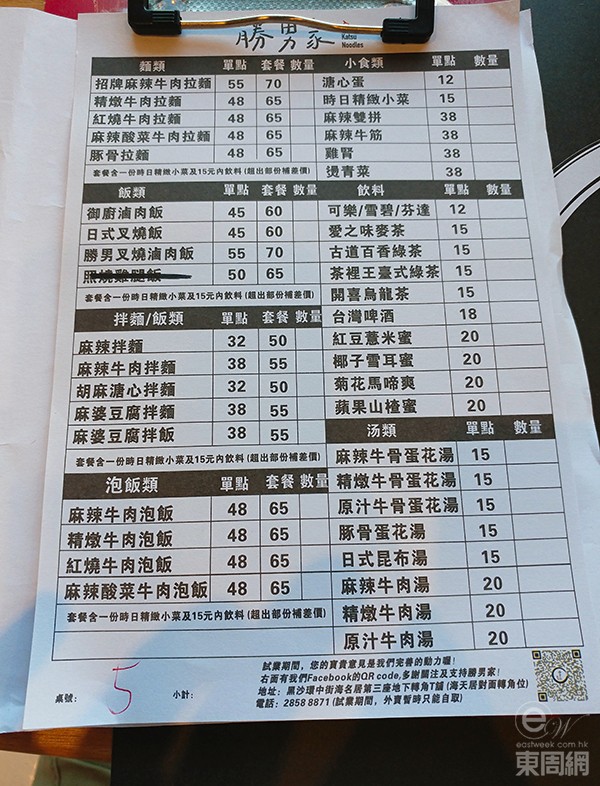 勝男家
Katsu
Noodles
麵類 單點 套餐 數量
招牌麻辣牛肉拉麵 55 70
精燉牛肉拉麵 48 65
紅燒牛肉拉麵 48 65
麻辣酸菜牛肉拉麵 48 65
豚骨拉麵 48 65
套餐含一份時日精緻小菜及15元內飲料(超出部份補差價)
飯類 單點 套餐 數量
御廚滷肉飯 45 60
日式叉燒飯 45 60
勝男叉燒滷肉飯 55 70
照燒雞腿飯 50 65
套餐含一份時日精緻小菜及15元內飲料(超出部份補差價)
拌麵/飯類 單點 套餐 數量
麻辣拌麵 32 50
麻辣牛肉拌麵 38 55
胡麻溏心拌麵 32 50
麻婆豆腐拌麵 38 55
麻婆豆腐拌飯 38 55
套餐含一份時日精緻小菜及15元內飲料(超出部份補差價)
泡飯類 單點 套餐 數量
麻辣牛肉泡飯 48 65
精燉牛肉泡飯 48 65
紅燒牛肉泡飯 48 65
麻辣酸菜牛肉泡飯 48 65
套餐含一份時日精緻小菜及15元內飲料(超出部份補差價)
小食類 單點 數量
溏心蛋 12
時日精緻小菜 15
麻辣雙拼 38
麻辣牛筋 38
雞腎 38
燙青菜 38
飲料 單點 數量
可樂/雪碧/芬達 12
愛之味麥茶 15
古道百香綠茶 15
茶裡王臺式綠茶 15
開喜烏龍茶 15
台灣啤酒 18
紅豆薏米蜜 20
椰子雪耳蜜 20
菊花馬啼爽 20
蘋果山楂蜜 20
汤類 單點 數量
麻辣牛骨蛋花湯 15
精燉牛骨蛋花湯 15
原汁牛骨蛋花湯 15
豚骨蛋花湯 15
日式昆布湯 15
麻辣牛肉湯 20
精燉牛肉湯 20
原汁牛肉湯 20
桌號: 5 小計:
試業期間，您的寶貴意見是我們完善的動力喔!
右面有我們Facebook的QR code,多謝關注及支持勝男家!
地址：黑沙環中街海名居第三座地下轉角T舖 (海天居對面轉角位)
電話：2858 8871 (試業期間，外賣暫時只能自取)
eW
eastweek.com.hk
東周網